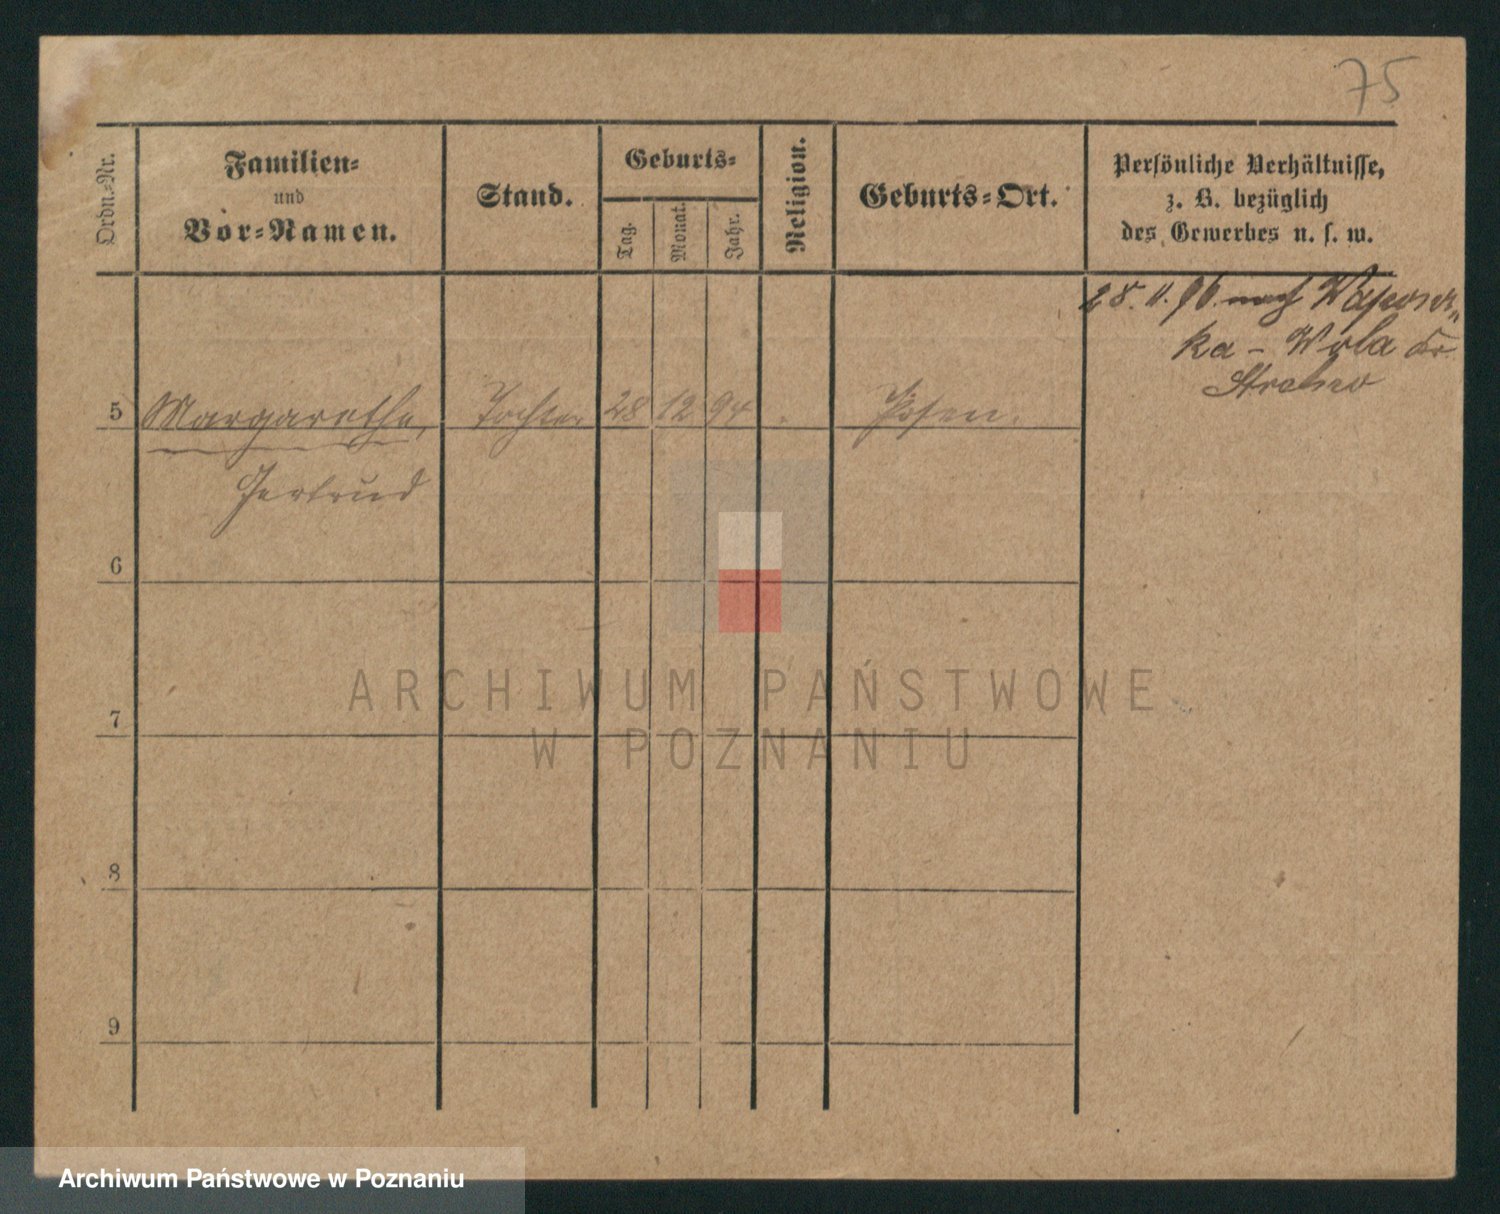 75
Ordn.-Nr.
Familien-
und
Vor-Namen.
Stand.
Geburts-
Tag.
Monat.
Jahr.
Religion.
Geburts-Ort.
Persönliche Verhältnisse,
z. B. bezüglich
des Gewerbes u. s. w.
28. 11. 96. nach
ka - Wola Kr.
5 Margarethe, Tochter 28 12 94 . Posen.
Gertrud
6
7
8
9
ARCHIWUM PAŃSTWOWE
W POZNANIU
Archiwum Państwowe w Poznaniu